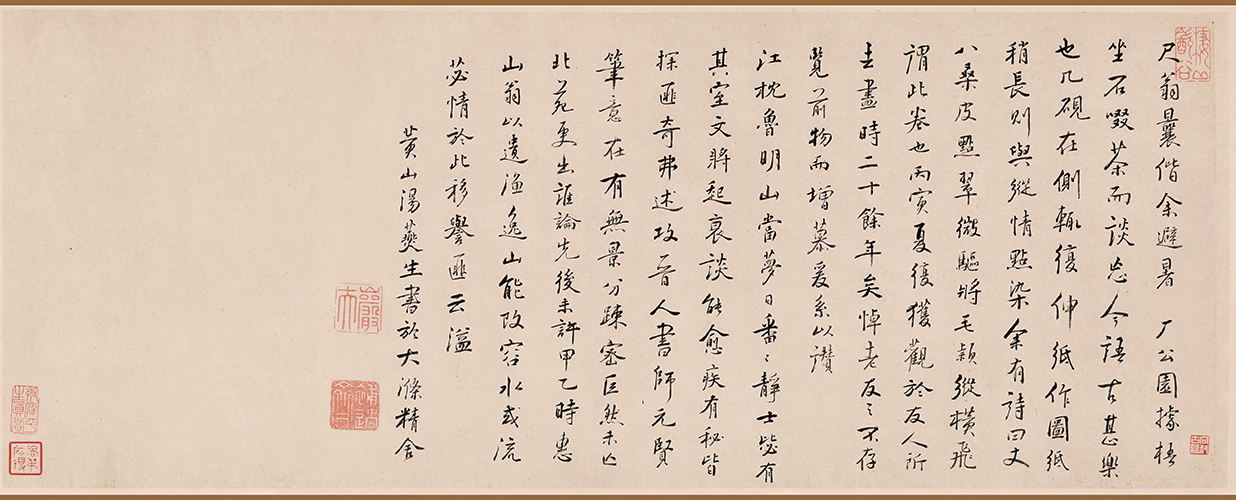 尺翁曩偕余避暑厂公園據梧
坐石啜茶而談忘今語古甚樂
也几硯在側輒復伸紙作圖紙
稍長則與縱情點染余有詩曰丈
八桑皮點翠微驅將毛穎縱橫飛
謂此卷也丙寅夏復獲觀於友人所
去盡時二十餘年矣悼老友之不存
覽前物而增慕爰系以讚
江枕魯明山當夢日番〻靜士毖有
其室文將起衰談能愈疾有秘皆
探匪奇弗述攻晉人書師元賢
筆意在有無景分疎密巨然未亡
北苑更出誰論先後未許甲乙時惠
山翁以遺漁逸山能改容水或流
苾情於此移譽匪云溢
黄山湯燕生書於大滌精舍